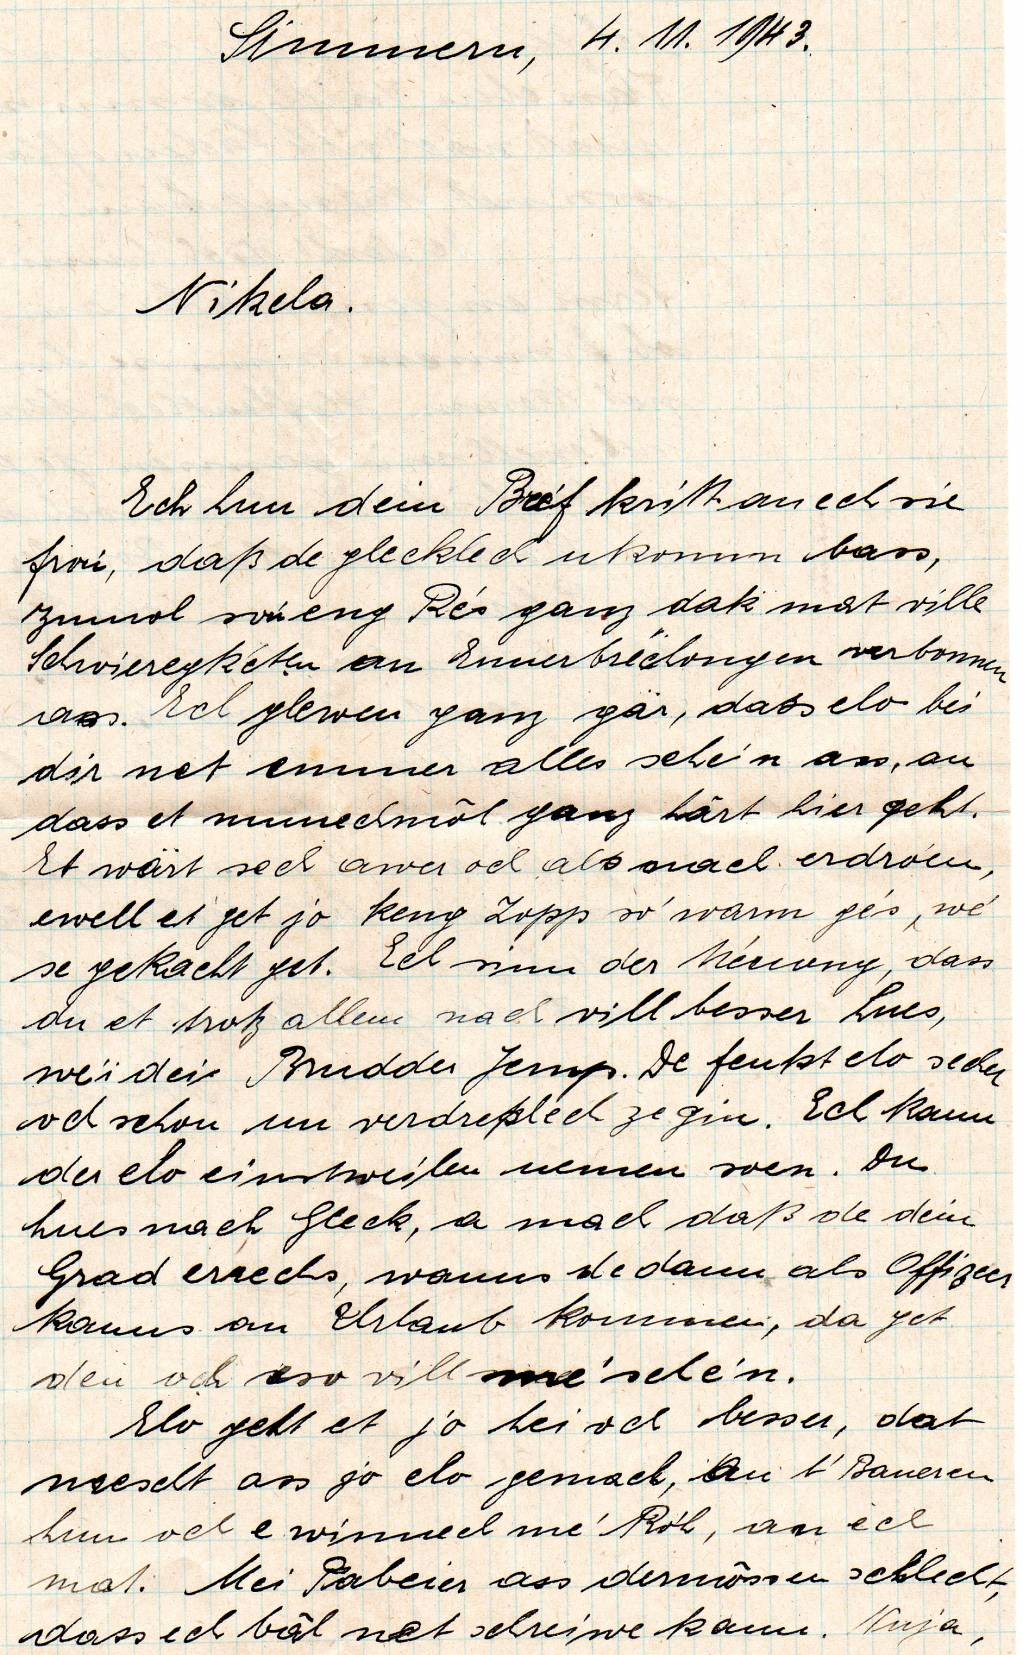 Simmern, 4. 11. 1943.
Nikela.
Ech hun dein Bréf kritt an ech sie
froi, daß de glecklech ukomm bass,
zumol soueng Rés ganz dak mat ville
Schwieregketen an Ennerbréchongen verbonnen
ass. Ech glewen ganz gär, dass elo bei
dir net emmer alles schéin ass, an
dass et munechmōl ganz härt hier geht.
Et wärt sech awer och als nach erdroen,
ewell et get jo keng Zopp só warm gés, wé
se gekacht get. Ech sinn der Méenong, dass
du et trotz allem nach vill besser hues,
wéi dei Brudder Jemp. De fenkst elo secher
och schon un verdreßlech ze gin. Ech kann
der elo einstweilen nemen soen. Du
hues nach Gleck, a mach daß de dein
Grad erechs, wanns de dann als Offizeer
kanns an Urlaub kommen, da get
den och eso vill mé schén.
Elo geht et jo hei och besser, dat
meescht ass jo elo gemach, an t' Baueren
hun och e winnech mé Róh, an ech
mat. Mei Pabeier ass dermōssen schlecht,
dass ech bāl net schreiwe kann. Nuja,